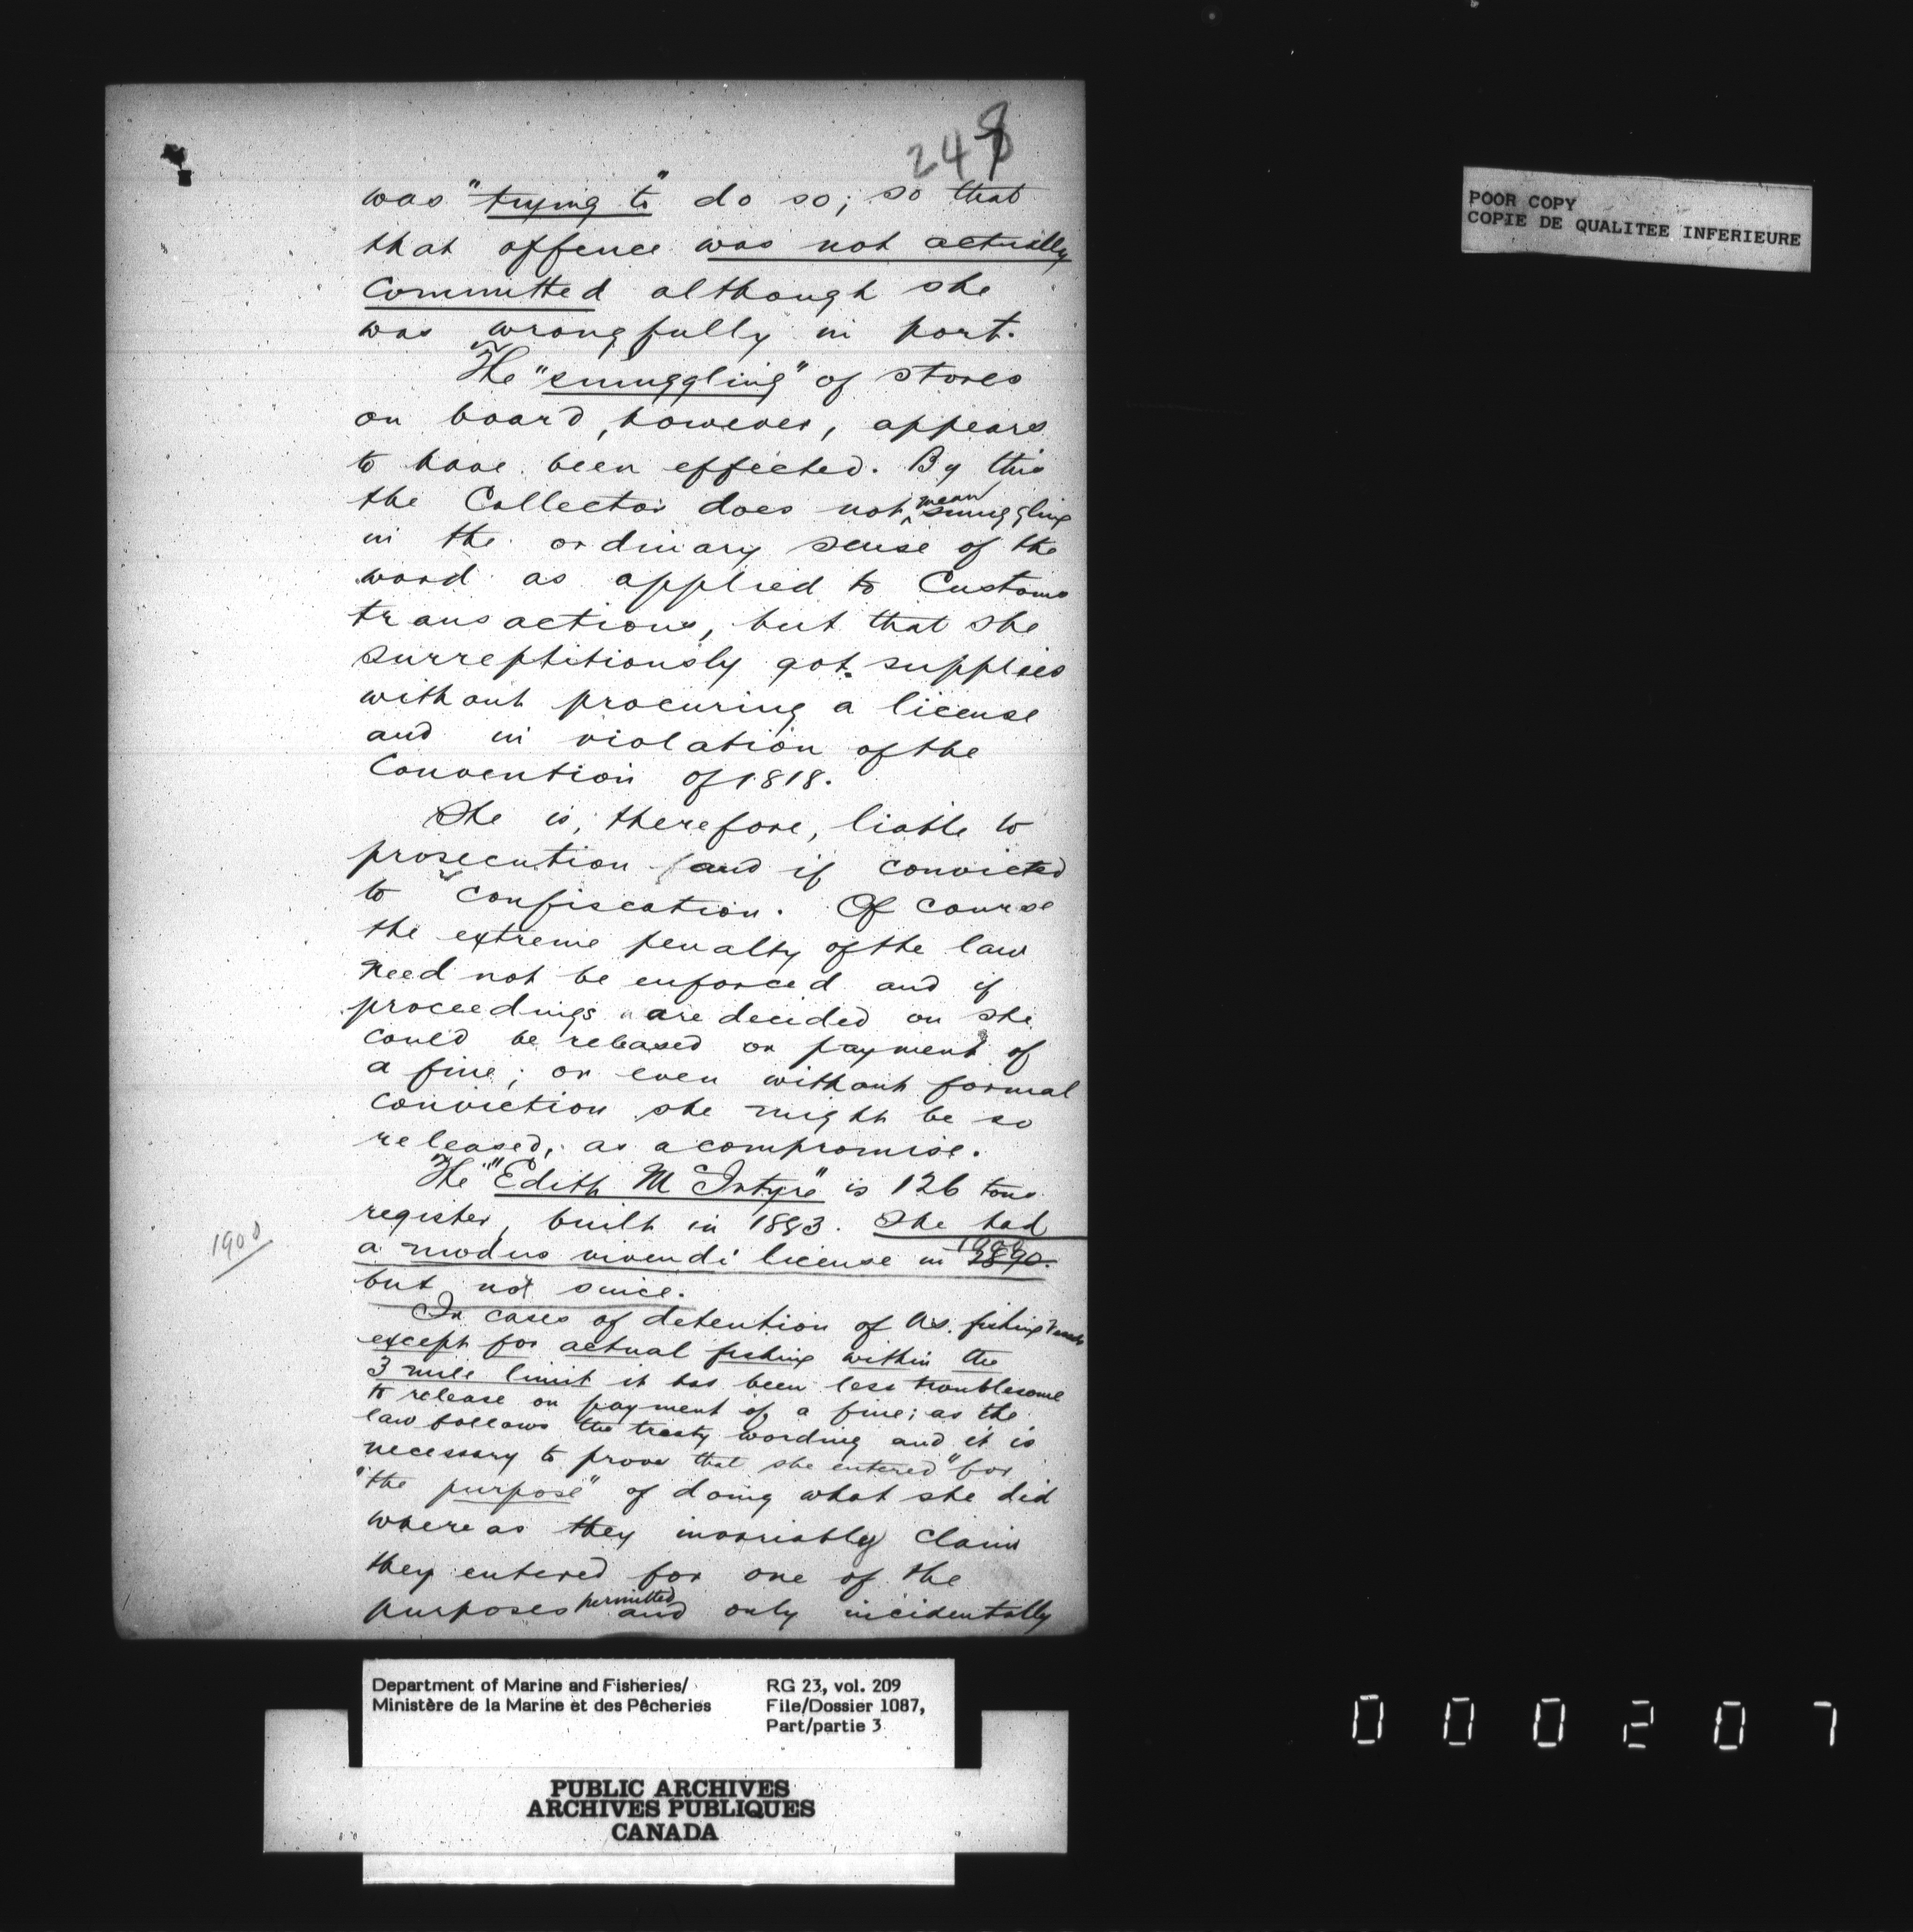 248
was "trying to" do so; so that
that offence was not actually
committed although she
was wrongfully in port.
The "smuggling" of stores
on board, however, appears
to have been effected. By this
the Collector does not mean smuggling
in the ordinary sense of the
word as applied to Customs
transactions, but that she
surreptitiously got supplies
without procuring a license
and in violation of the
Convention of 1818.
She is, therefore, liable to
prosecution and if convicted
to confiscation. Of course
the extreme penalty of the law
need not be enforced and if
proceedings are decided on she
could be released on payment of
a fine; or even without formal
conviction she might be so
released, as a compromise.
The "Edith McIntyre" is 126 tons
register, built in 1893. She had
1900
a modus vivendi license in 1900 1890.
but not since.
In cases of detention of U.S. fishing vessels
except for actual fishing within the
3 mile limit it has been less troublesome
to release on payment of a fine; as the
law follows the treaty wording and it is
necessary to prove that she entered "for
"the purpose" of doing what she did
whereas they invariably claim
they entered for one of the
purposes permitted and only incidentally
POOR COPY
COPIE DE QUALITEE INFERIEURE
Department of Marine and Fisheries/
Ministère de la Marine et des Pêcheries
RG 23, vol. 209
File/Dossier 1087,
Part/partie 3
PUBLIC ARCHIVES
ARCHIVES PUBLIQUES
CANADA
000207